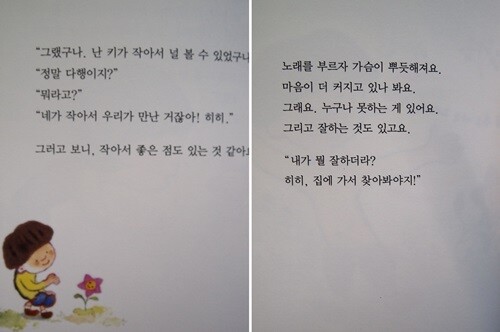 “그랬구나. 난 키가 작아서 널 볼 수 있었구나
“정말 다행이지?”
“뭐라고?”
“네가 작아서 우리가 만난 거잖아! 히히.”
그러고 보니, 작아서 좋은 점도 있는 것 같아요
노래를 부르자 가슴이 뿌듯해져요.
마음이 더 커지고 있나 봐요.
그래요. 누구나 못하는 게 있어요.
그리고 잘하는 것도 있고요.
“내가 뭘 잘하더라?
히히, 집에 가서 찾아봐야지!”